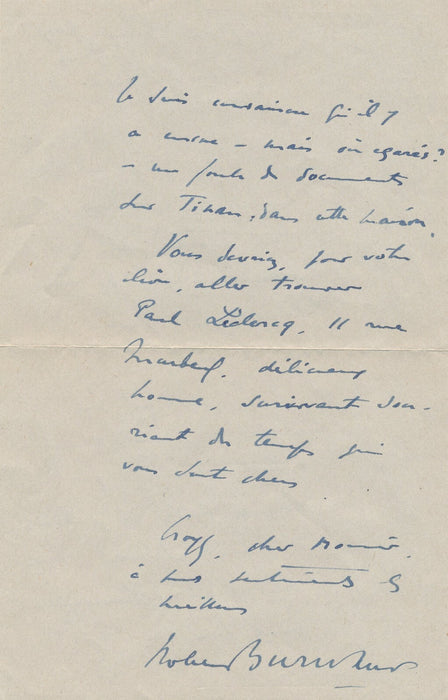 Je suis convaincu qu'il y
a encore – mais où égarés?
– une foule de documents
sur Tinan, dans cette maison.
Vous devriez, pour votre
aller trouver
Paul Leclercq, 11 rue
délicieux
homme, survivant sou-
riant des temps qui
vous sont chers
Croyez, cher
à mes sentiments les
meilleurs
Robert Burnand